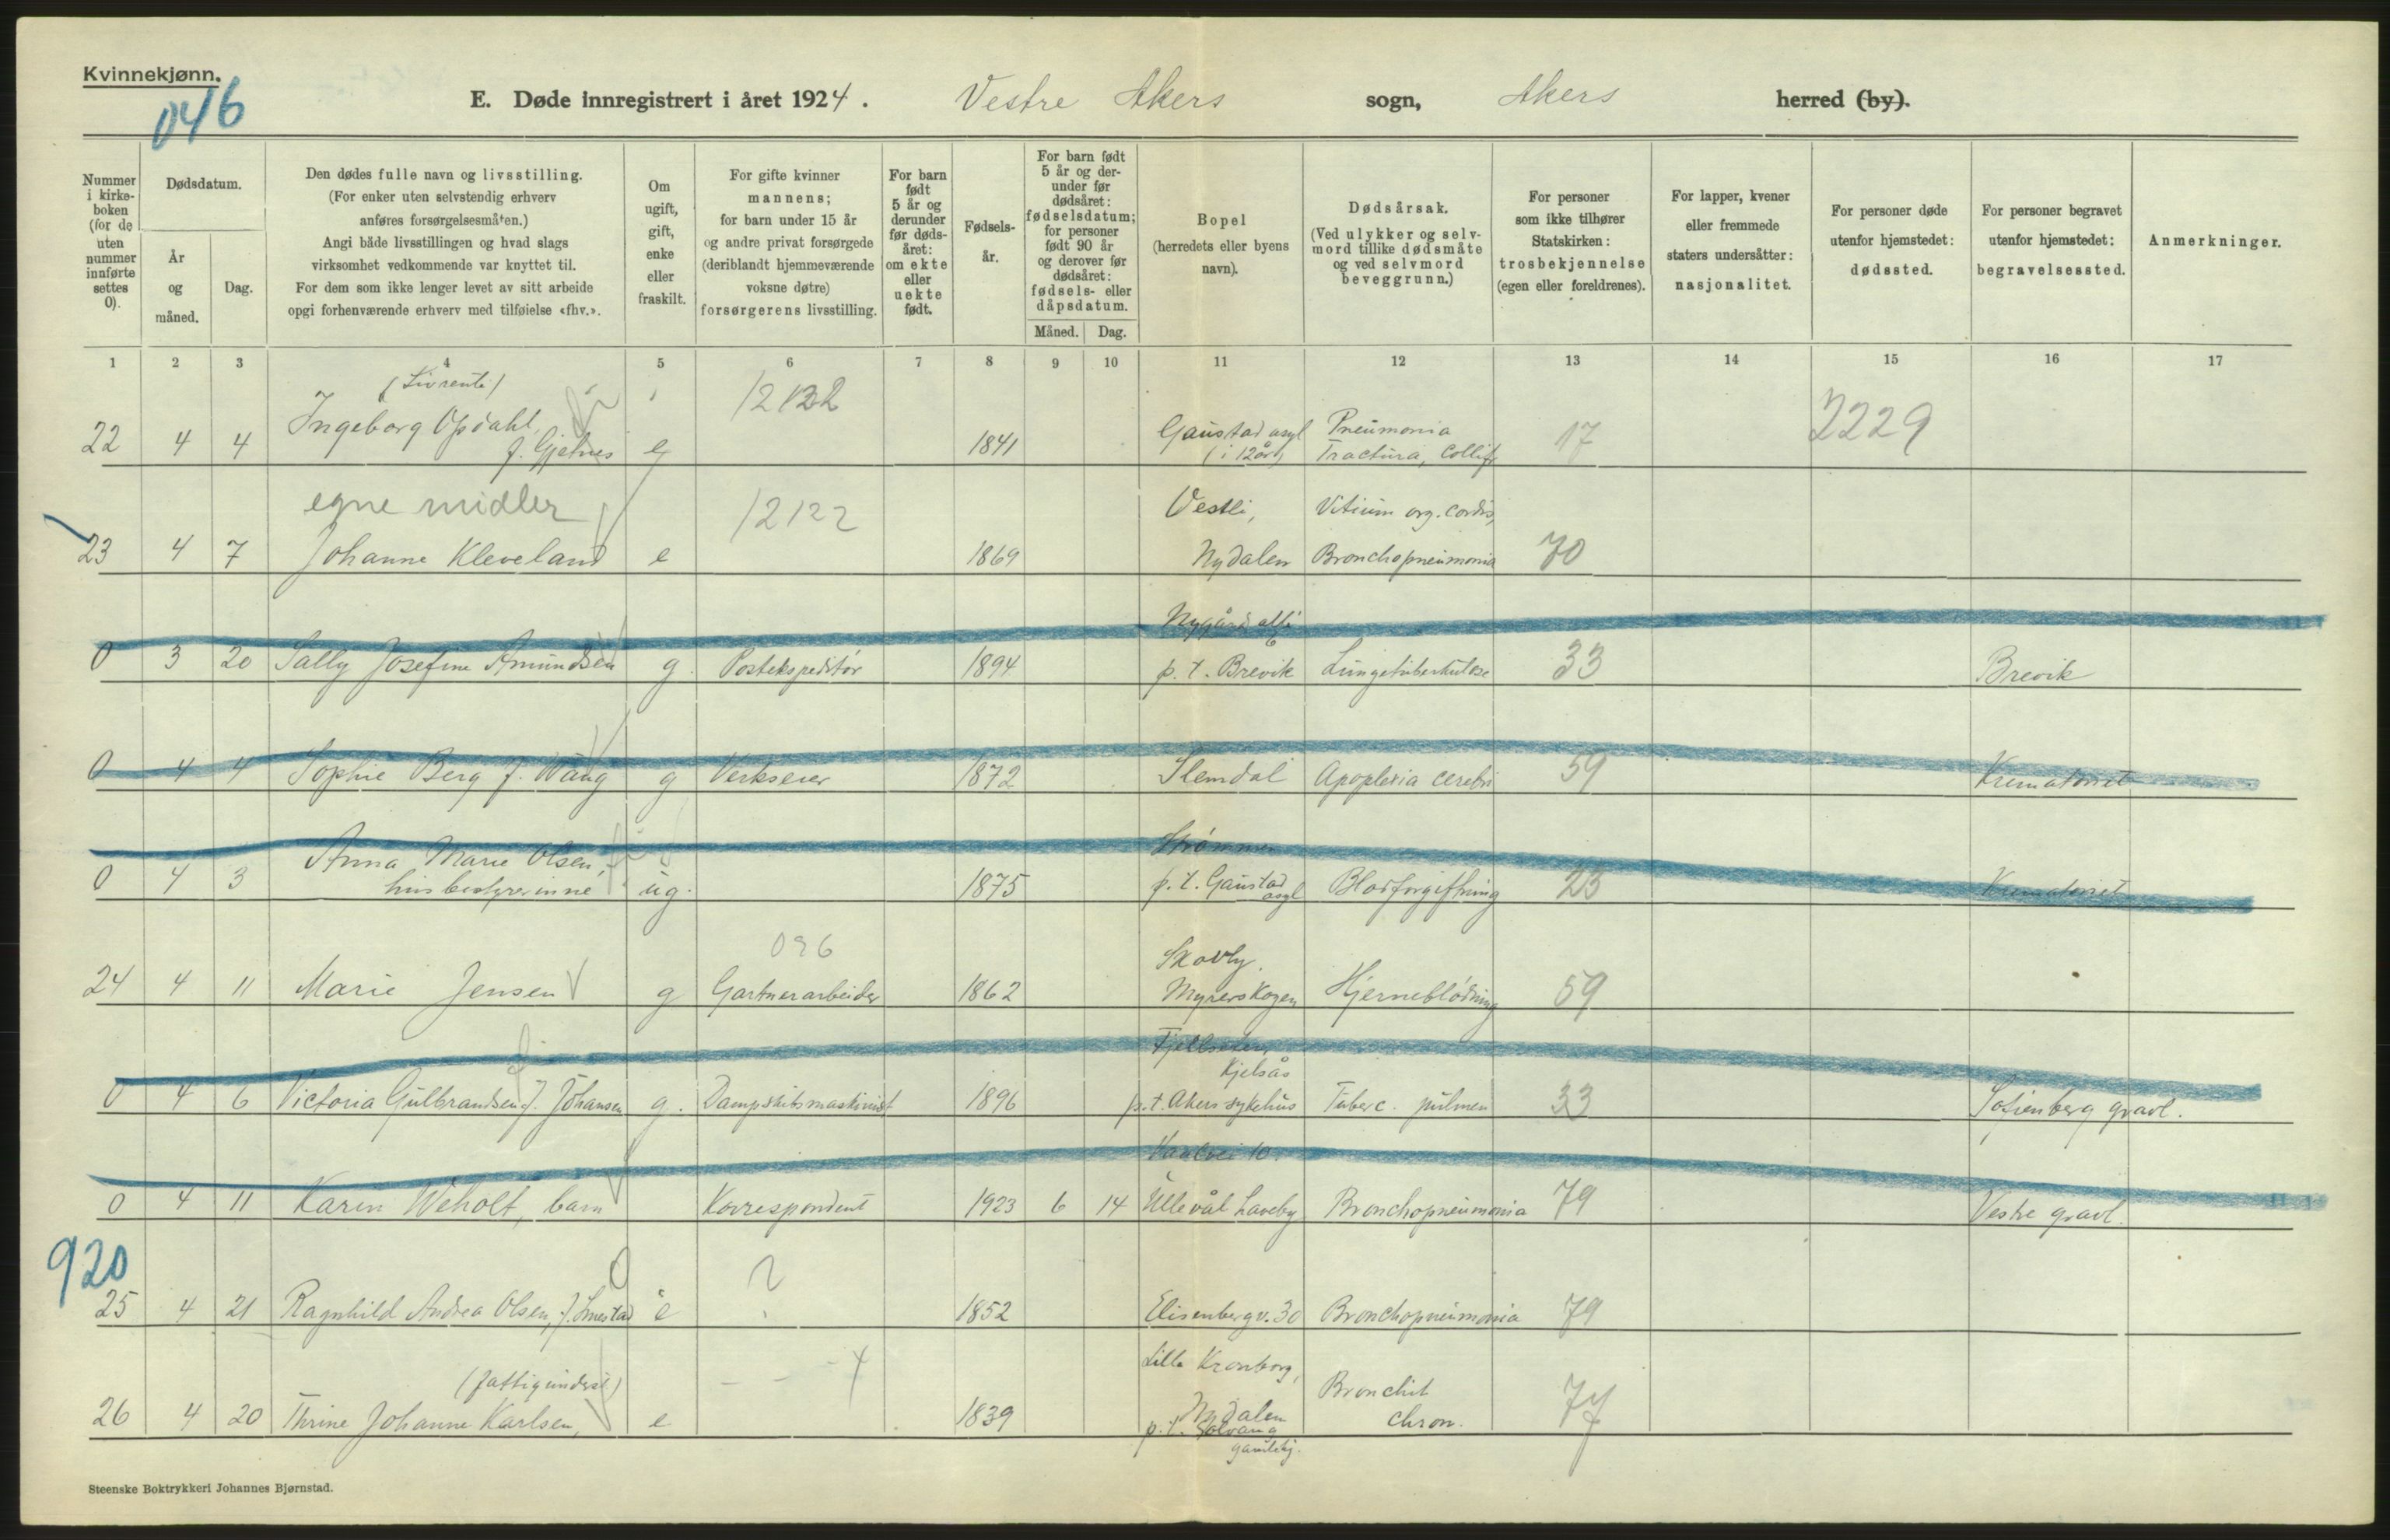 Kvinnekjønn.
046
E. Døde innregistrert i året 1924. Vestre Akers sogn, Akers herred (by).
Nummer i kirke-boken (for de uten nummer innførte settes 0).
Dødsdatum.
År og måned.
Dag.
Den dødes fulle navn og livsstilling.
(For enker uten selvstendig erhverv
anføres forsørgelsesmåten.)
Angi både livsstillingen og hvad slags
virksomhet vedkommende var knyttet til.
For dem som ikke lenger levet av sitt arbeide
opgi forhenværende erhverv med tilføielse «fhv.».
Om ugift, gift, enke eller fraskilt.
For gifte kvinner
mannens;
for barn under 15 år
og andre privat forsørgede
(deriblandt hjemmeværende
voksne døtre)
forsørgerens livsstilling.
For barn født 5 år og derunder før døds-året: om ekte eller uekte født.
Fødsels-år.
For barn født 5 år og der-under før dødsåret: fødselsdatum; for personer født 90 år og derover før dødsåret: fødsels- eller dåpsdatum.
Måned.
Dag.
Bopel
(herredets eller byens
navn).
Dødsårsak.
(Ved ulykker og selv-
mord tillike dødsmåte
og ved selvmord
beveggrunn.)
For personer
som ikke tilhører
Statskirken:
trosbekjennelse
(egen eller foreldrenes).
For lapper, kvener
eller fremmede
staters undersåtter:
nasjonalitet.
For personer døde
utenfor hjemstedet:
dødssted.
For personer begravet
utenfor hjemstedet:
begravelsessted.
Anmerkninger.
1 2 3 4 5 6 7 8 9 10 11 12 13 14 15 16 17
(Livrente)
Ingeborg Opdahl, 12122 Gaustad asyl Pneumonia 2229
22 4 4 f. Gjelnes e 1841 (i 12 år) Fractura, Colli 17
egne midler 12122 Vestli, Vitium org. cordis,
23 4 7 Johanne Kleveland e 1869 Nydalen Bronchopneumonia 70
0 3 20 Sally Josefine Amundsen g. Postekspeditør 1894 p.t. Brevik Lungetuberkulose 33 Brevik
0 4 4 Sophie Berg f. Wang g Verkseier 1872 Slemdal Apoplexia cerebri 59 Krematoriet
Anna Marie Olsen, Strømmen
0 4 3 husbestyrerinne ug. 1875 p.t. Gaustad asyl Blodforgiftning 23 Krematoriet
096 Skovly,
24 4 11 Marie Jensen g Gartnerarbeider 1862 Myrerskogen Hjerneblødning 59
Kjelsås
0 4 6 Victoria Gulbrandsen f. Johansen g. Dampskibsmaskinist 1896 p.t. Akers sykehus Tuberc. pulmon 33 Sofienberg gravl.
0 4 11 Karin Weholt, barn Korrespondent 1923 6 14 Ullevål haveby Bronchopneumonia 79 Vestre gravl.
920
25 4 21 Ragnhild Andrea Olsen, f. Smestad e ? 1852 Elisenbergv. 30 Bronchopneumonia 79
Lille Kronborg,
(fattigunderst) Nydalen Bronchit
26 4 20 Thrine Johanne Karlsen, e 1839 p.t. Solvang gamlehj. chron. 77
Steenske Boktrykkeri Johannes Bjørnstad.